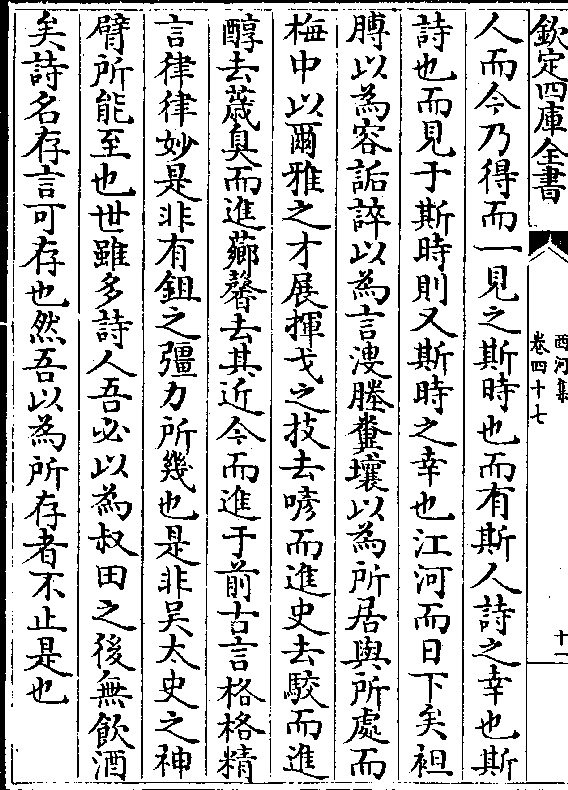 欽定四庫全書
西河集
卷四十七
十一
人而今乃得而一見之斯時也而有斯人詩之幸也斯
詩也而見于斯時則又斯時之幸也江河而日下矣袒
膊以為容詬誶以為言溲塍糞壤以為所居與所處而
梅中以爾雅之才展揮戈之技去喭而進史去駮而進
醇去薉臭而進薌馨去其近今而進于前古言格格精
言律律妙是非有鉏之彊力所幾也是非吴太史之神
臂所能至也世雖多詩人吾必以為叔田之後無飲酒
矣詩名存言可存也然吾以為所存者不止是也